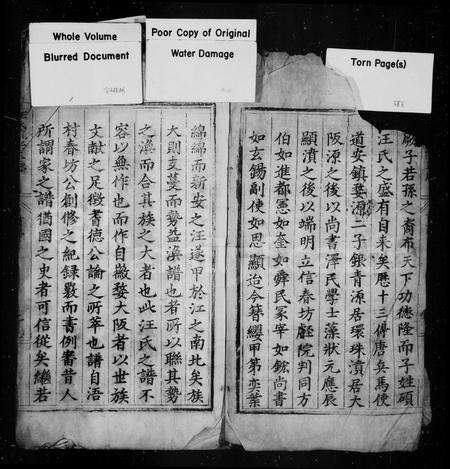 Whole Volume
Blurred Document
Poor Copy of Original
Water Damage
Torn Page(s)
厥子若孫之裔布天下功德隆而子姓碩
汪氏之盛有自来矣歷十三傳唐兵馬使
道安鎮婺源二子銀青源居環珠濆居大
阪源之後以尚書澤民學士藻狀元應辰
顯濆之後以端明立信春坊龍院判同方
伯如進都憲如奎如舜民冢宰如鋐尚書
如玄錫副使如思顯迨今簪纓甲第奕葉
綿綿而新安之汪遂甲於江之南北矣族
大則支蔓而勢益渙譜也者所以聯其勢
之渙而合其族之大者也此汪氏之譜不
容以無作也而作自敝婺大阪者以世族
文献之足徵耆德公論之所萃也譜自浯
村春坊公創修之紀錄嚴而書例審昔人
所謂家之譜猶國之史者可信從矣繼若